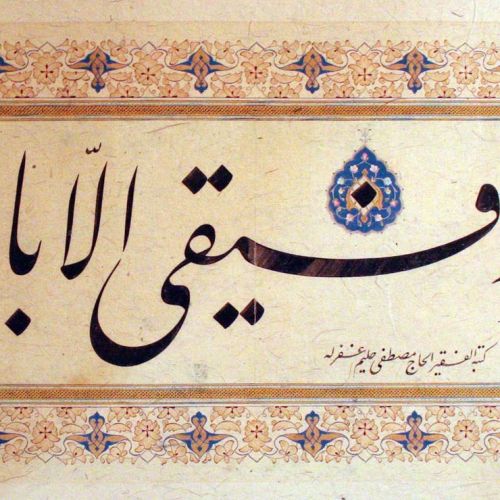 فيقى الّا با
كتبه الفقير الحاج مصطفى حليم غفرله